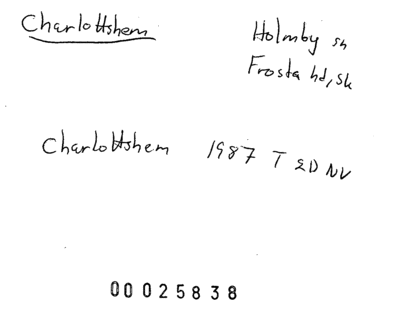 Charlottshem
Holmby sn
Frosta hd, sk
Charlottshem 1987 T 2D NV
00025838